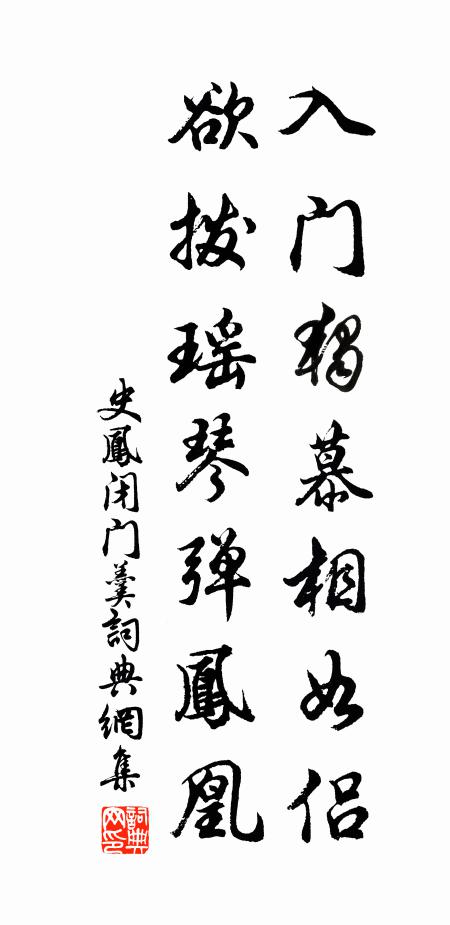 入门獨慕相如侣
欲拨瑶琴弹鳳凰
史鳳闭门羹詞典網集
詞典网印